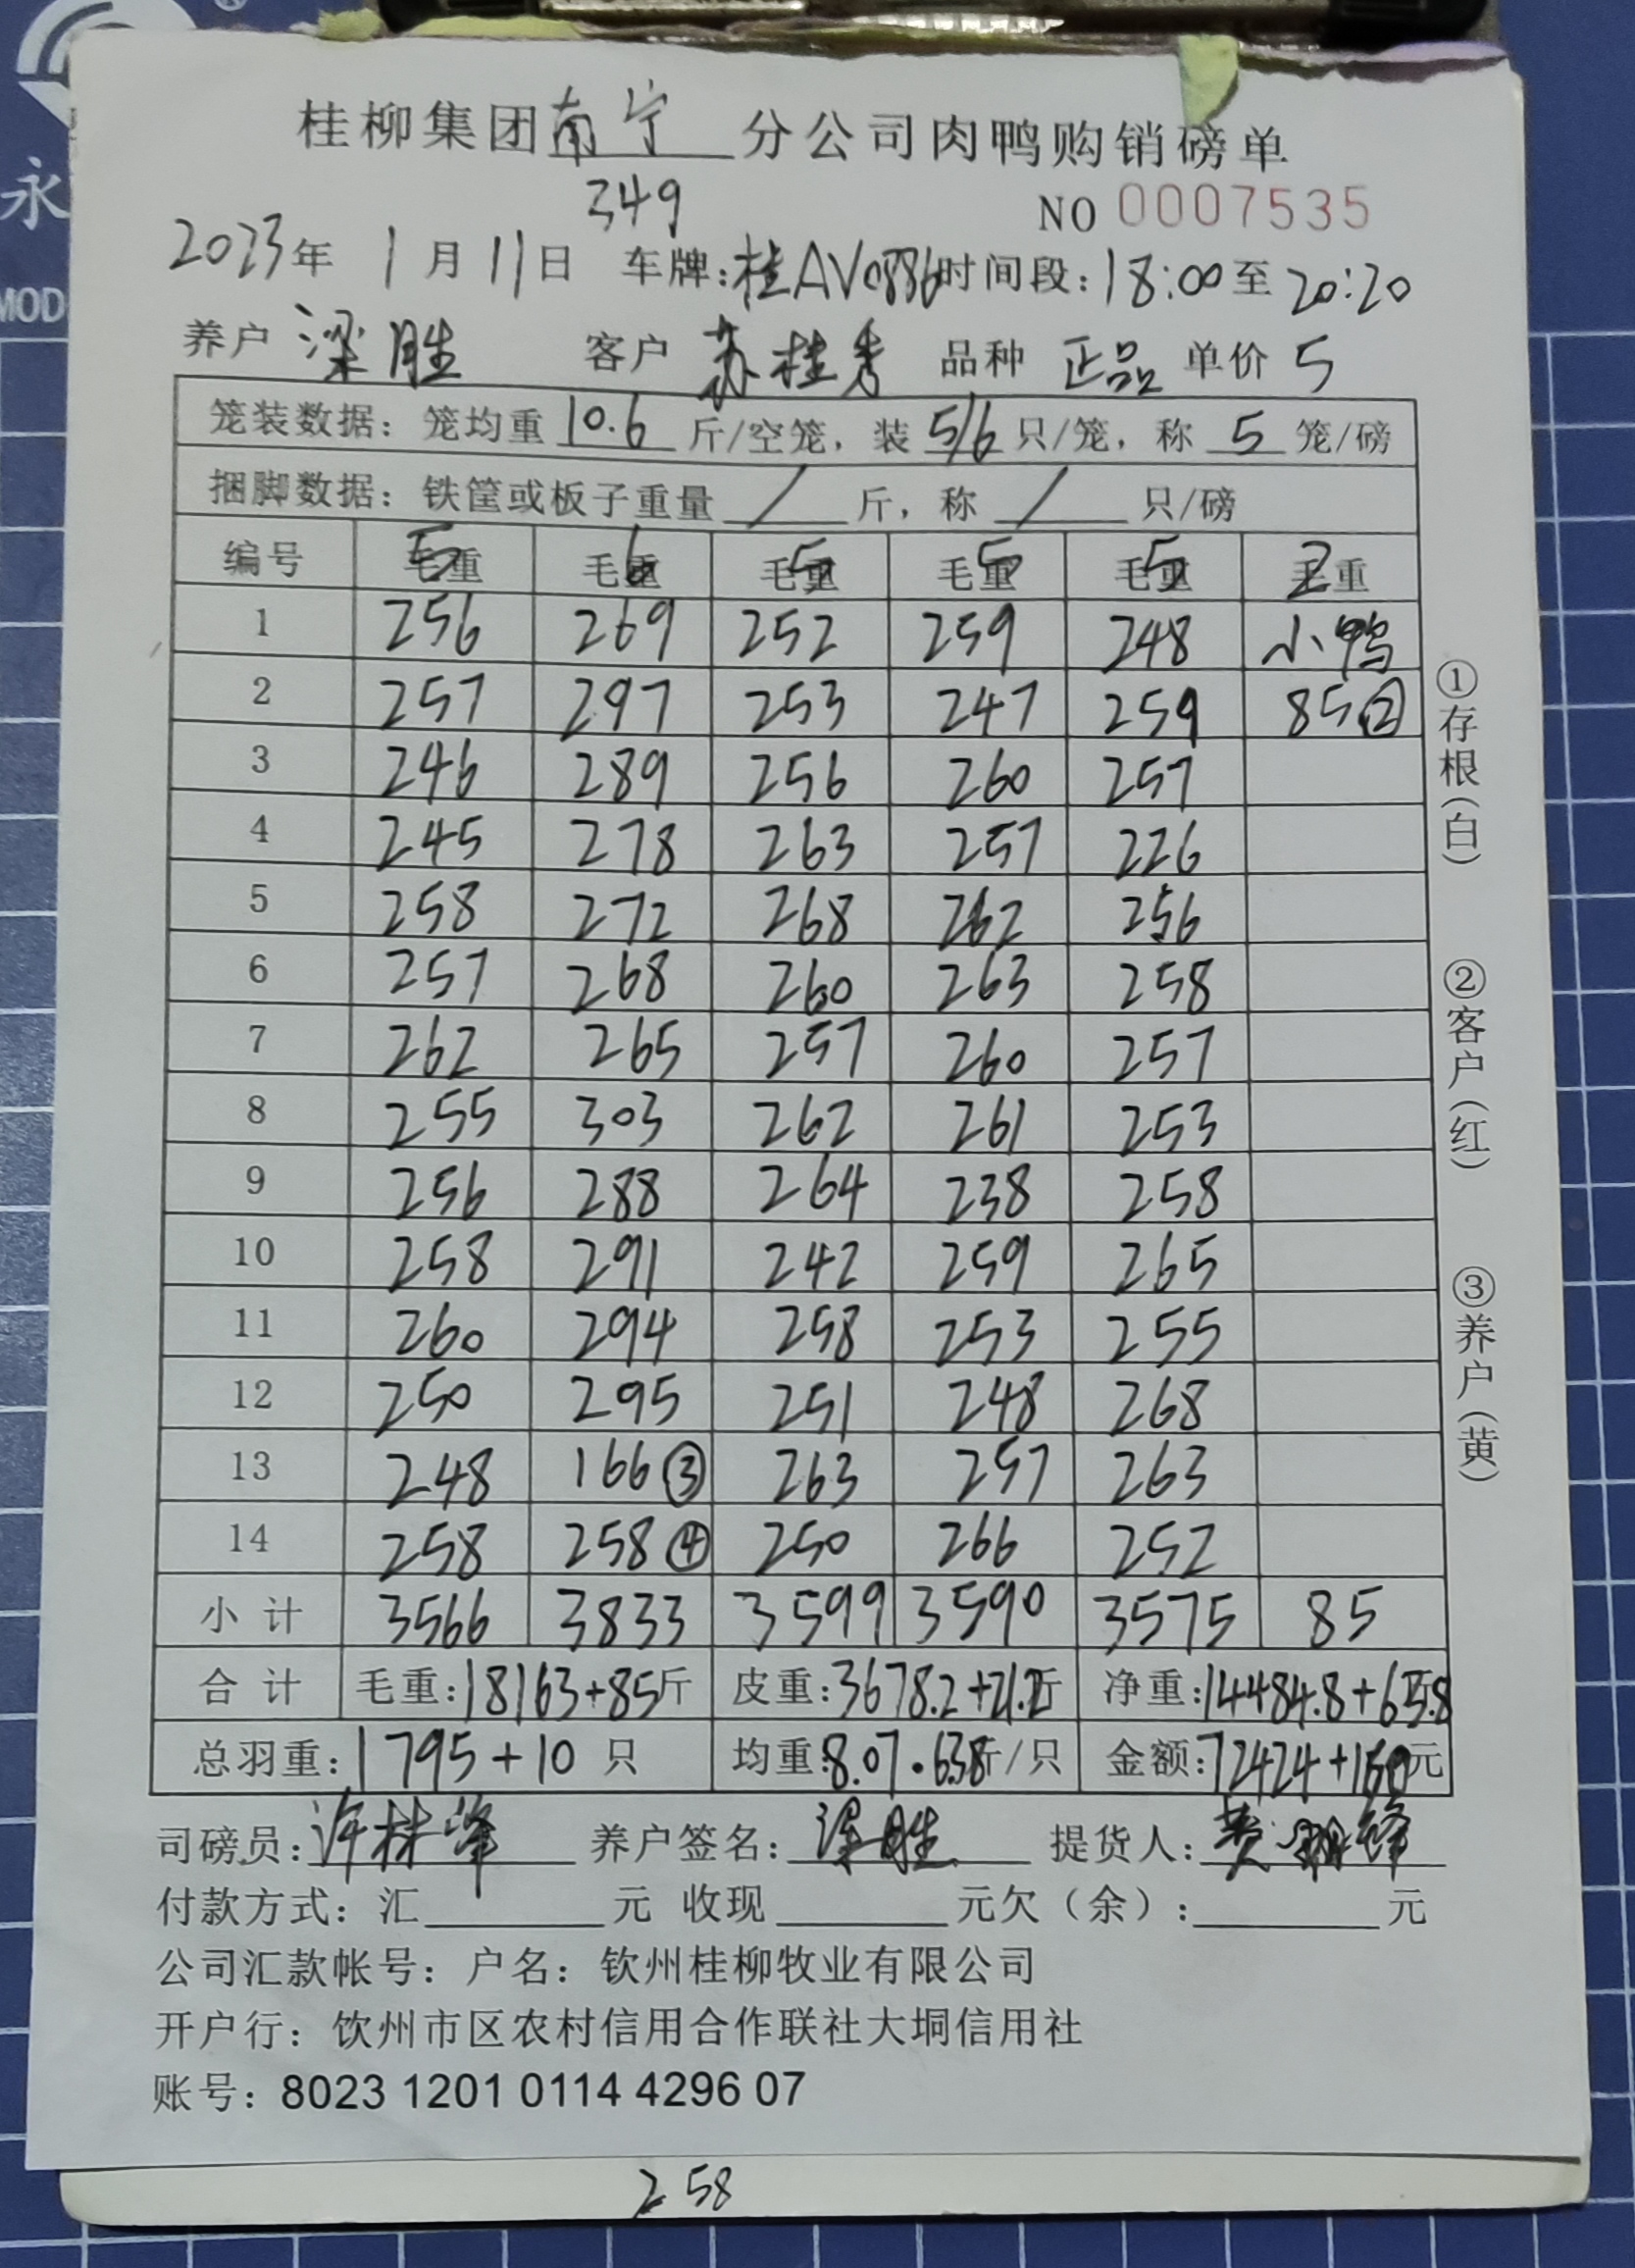 永
MOD
桂柳集团南宁分公司肉鸭购销磅单
349
NO 0007535
2023年 1月11日 车牌:桂AV0886 时间段:18:00至20:20
养户 梁胜 客户 苏桂秀 品种 正品 单价 5
笼装数据:笼均重 10.6 斤/空笼,装 5/6 只/笼,称 5 笼/磅
捆脚数据:铁筐或板子重量 / 斤,称 / 只/磅
编号 毛重5 毛重6 毛重5 毛重5 毛重5 毛重2
1 256 269 252 259 248 小鸭
2 257 297 253 247 259 85②
3 246 289 256 260 257
4 245 278 263 257 226
5 258 272 268 262 256
6 257 268 260 263 258
7 262 265 257 260 257
8 255 303 262 261 253
9 256 288 264 238 258
10 258 291 242 259 265
11 260 294 258 253 255
12 250 295 251 248 268
13 248 166③ 263 257 263
14 258 258④ 250 266 252
小计 3566 3833 3599 3590 3575 85
合计 毛重:18163+85斤 皮重:3678.2+21.2斤 净重:14484.8+63.8
总羽重:1795+10只 均重:8.07.6.38斤/只 金额:72424+160元
司磅员: 养户签名:梁胜 提货人:
付款方式:汇 元 收现 元欠(余): 元
公司汇款帐号:户名:钦州桂柳牧业有限公司
开户行:钦州市区农村信用合作联社大垌信用社
账号:8023 1201 0114 4296 07
①存根(白)
②客户(红)
③养户(黄)
258